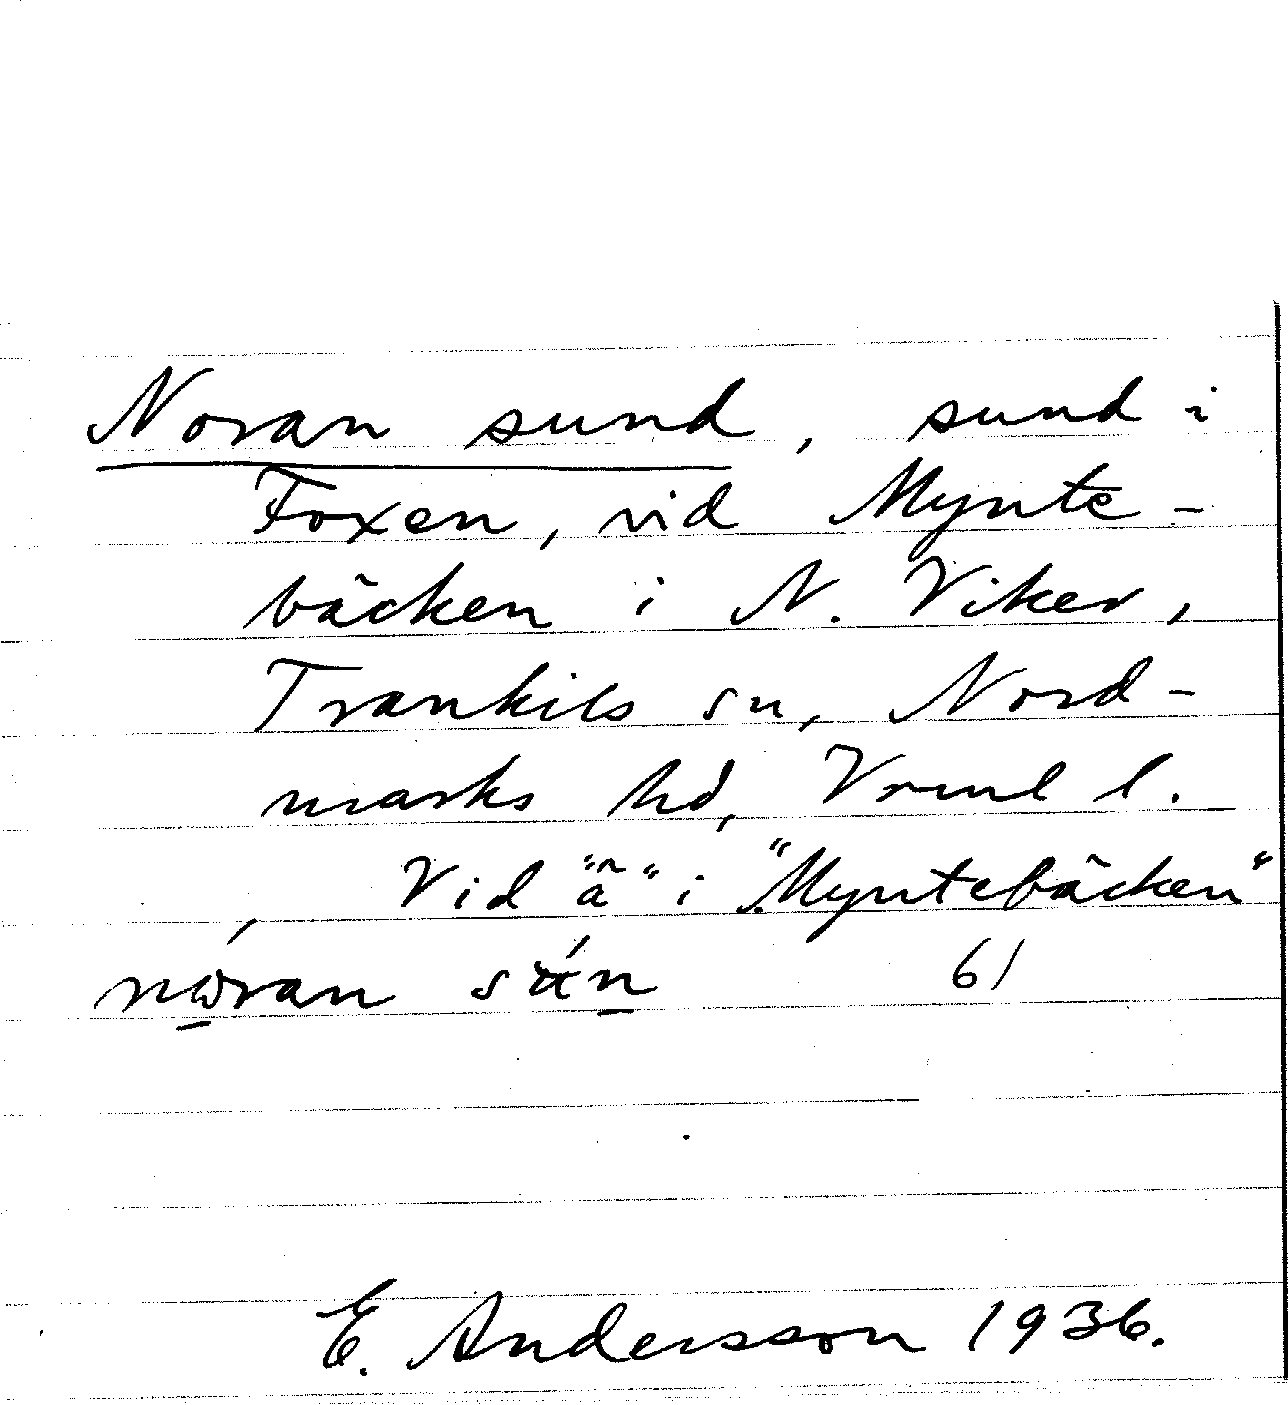 Noran sund, sund i
Foxen, vid Mynte-
bäcken i N. Viker,
Trankils sn, Nord-
marks hd, Vrml l.
Vid "ä" i "Myntebäcken"
61
E. Andersson 1936.